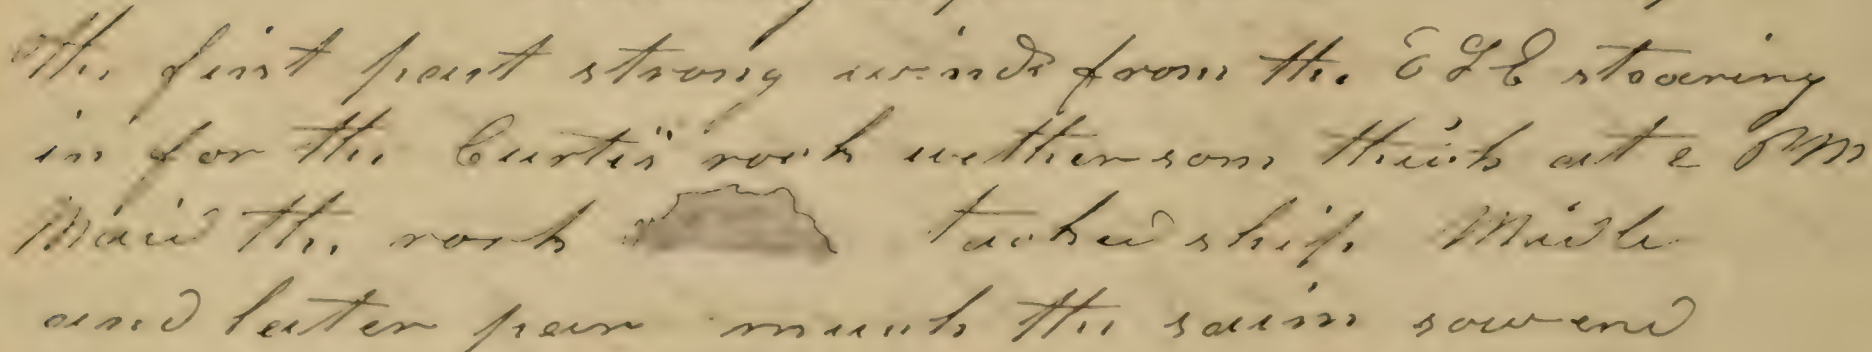 the first part strong winds from the ESE stearing
in for the Curtis rock wethersom thick at 2 PM
Maid the rock tacked ship Midle
and later par much the saim sow end